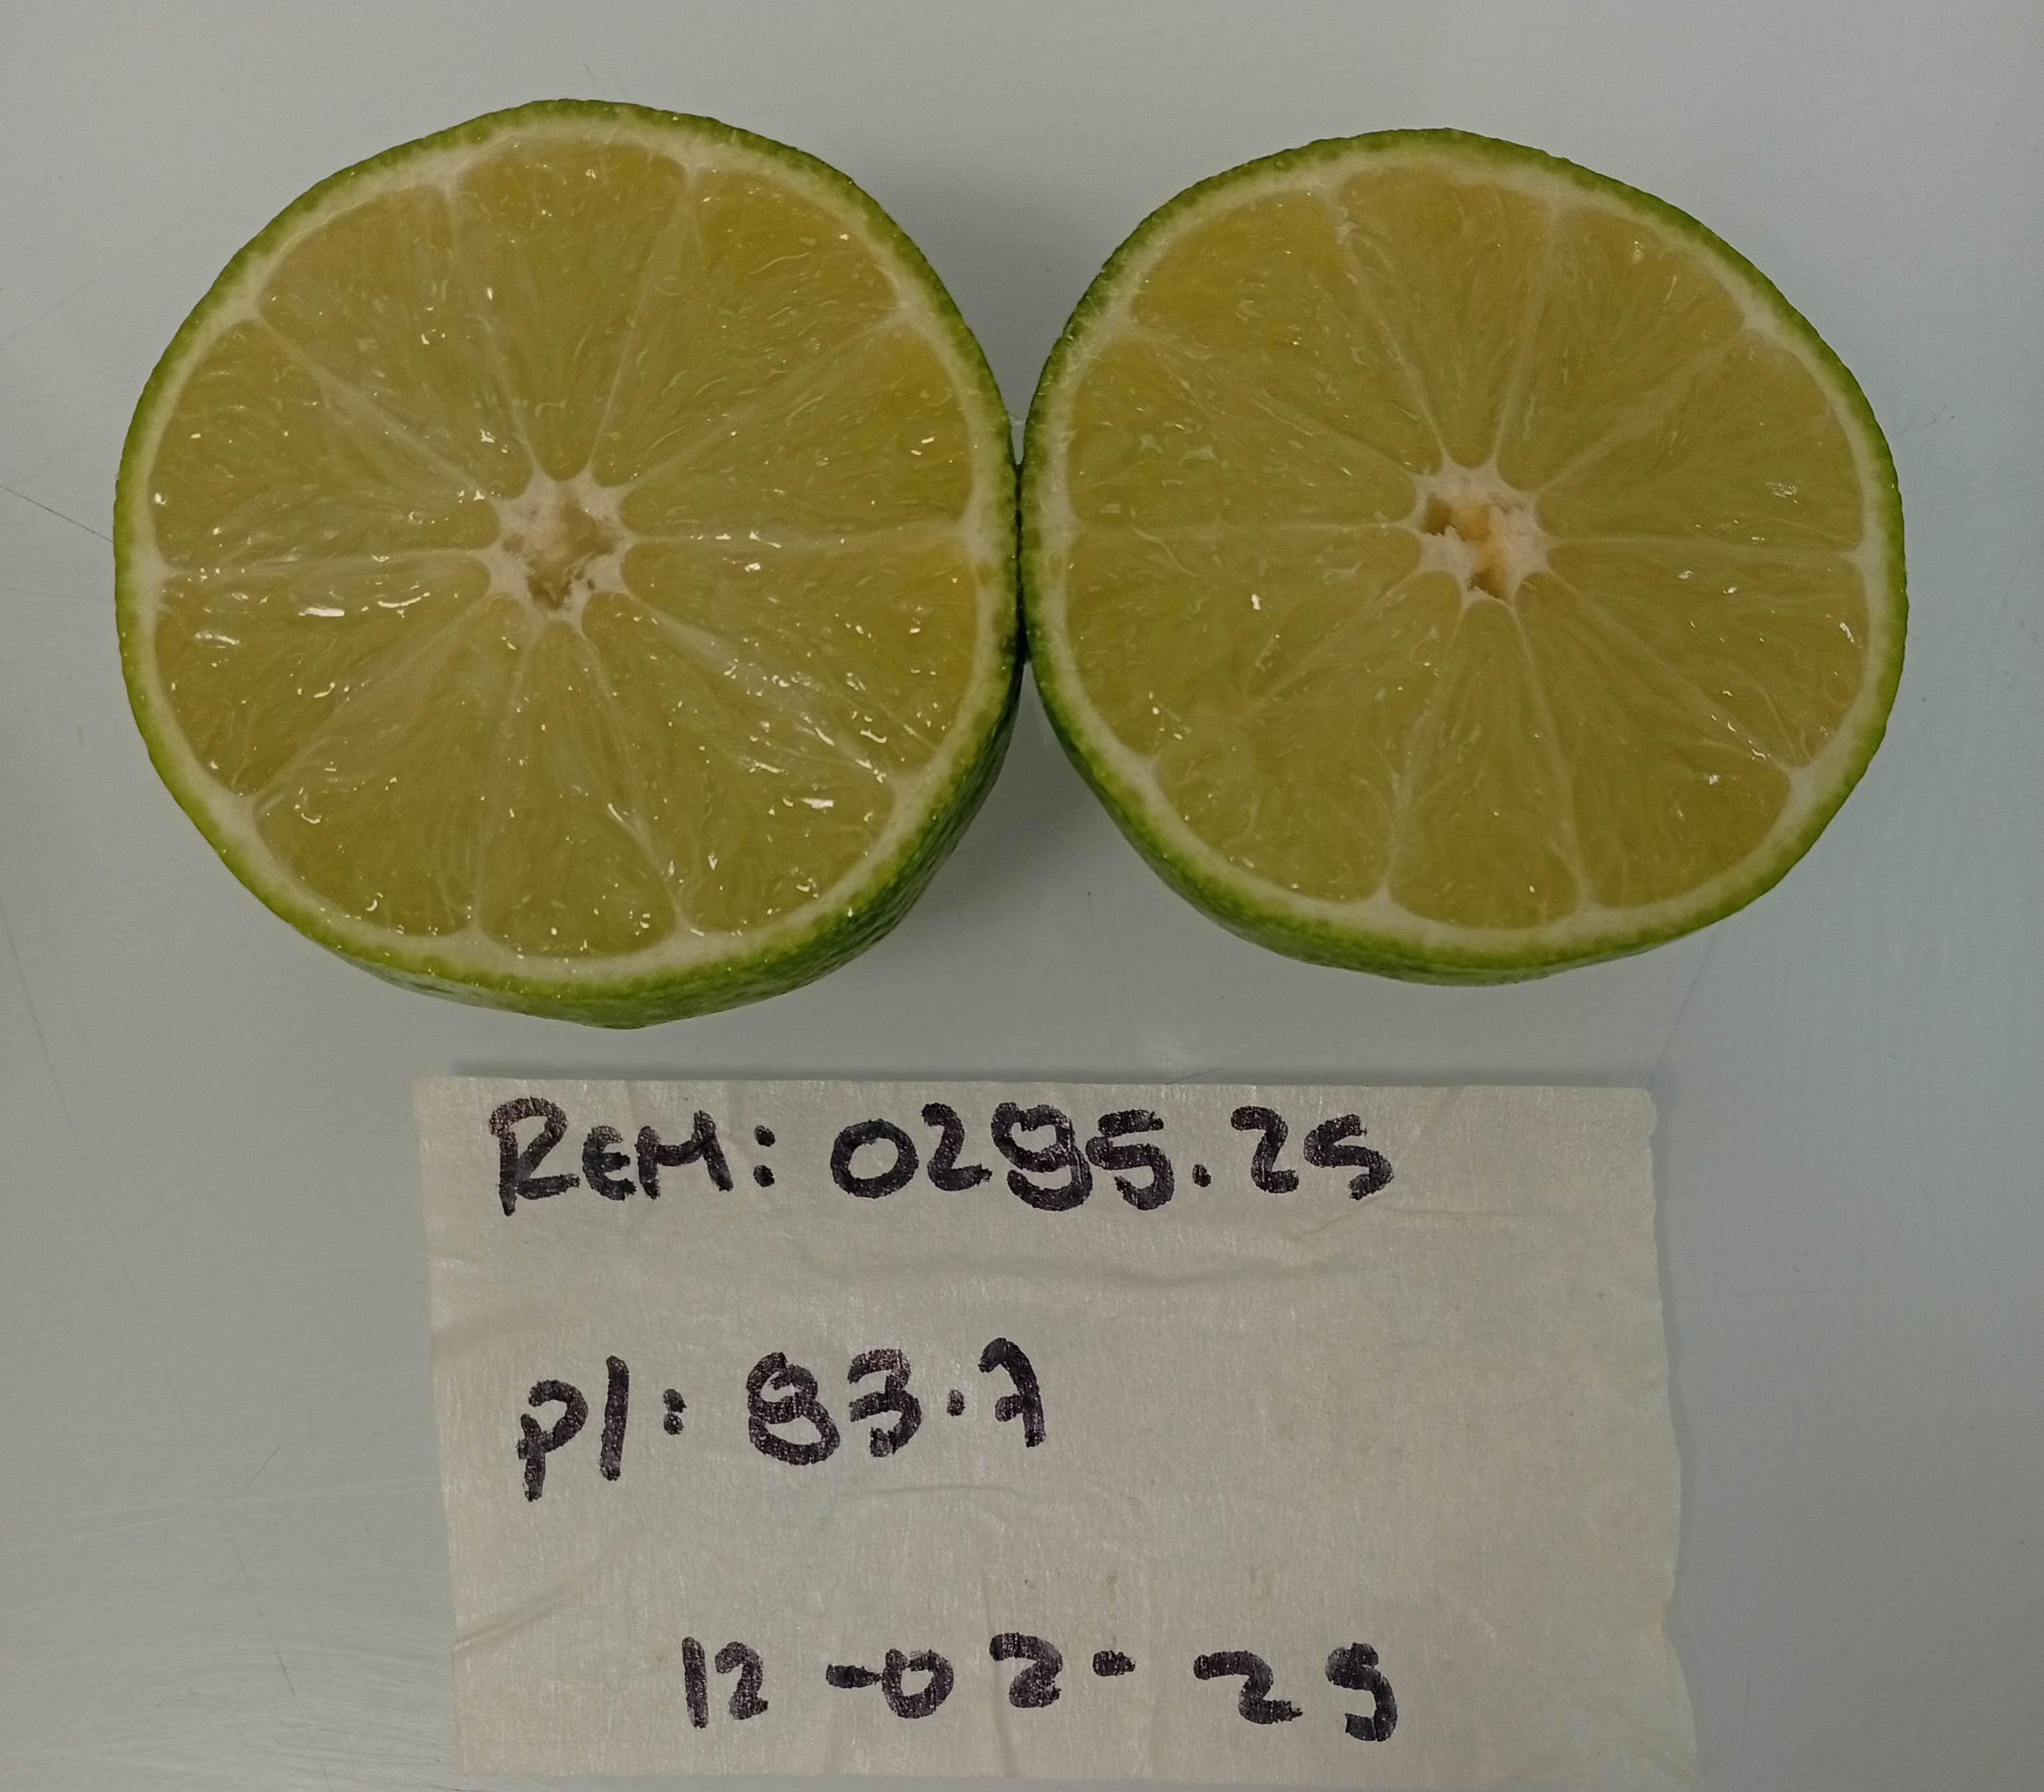 REM: 0295.25
P1: 83.7
12-02-25